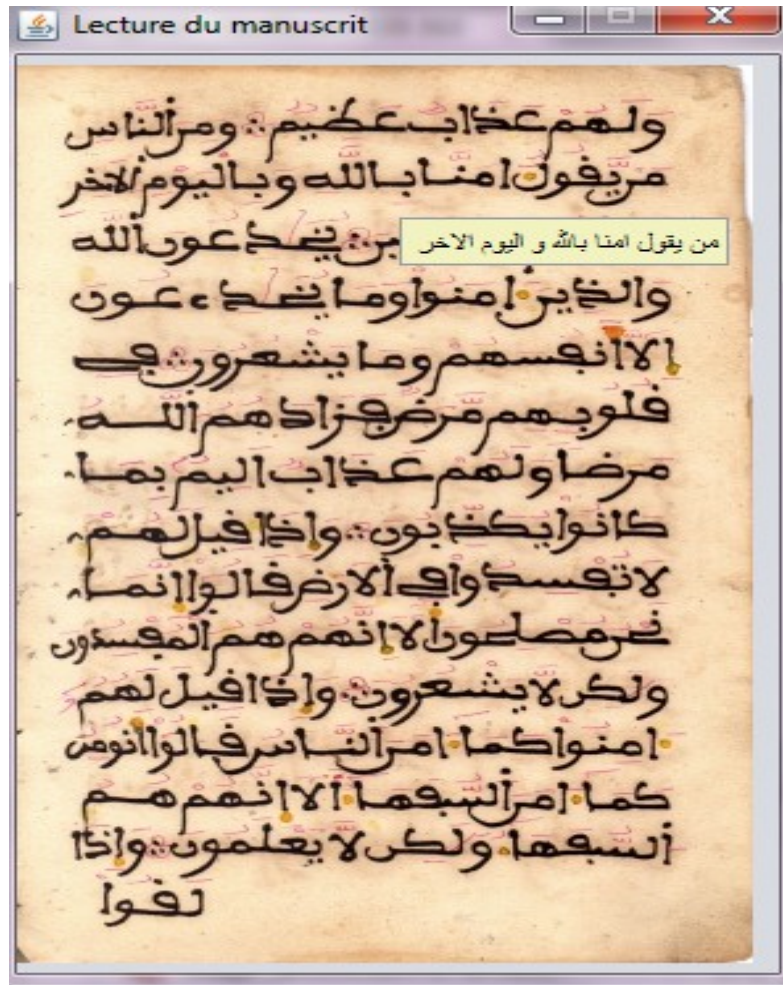 Lecture du manuscrit
ولهم عذاب عظيم ∴ ومن الناس
من يقول امنا بالله وباليوم الاخر
يخدعون الله
من يقول امنا بالله و اليوم الاخر
والذين امنوا وما يخدعون
الا انفسهم وما يشعرون ∴ في
قلوبهم مرض فزادهم الله
مرضا ولهم عذاب اليم بما
كانوا يكذبون ∴ واذا قيل لهم
لا تفسدوا في الارض قالوا انما
نحن مصلحون الا انهم هم المفسدون
ولكن لا يشعرون ∴ واذا قيل لهم
امنوا كما امن الناس قالوا انومن
كما امن السفها الا انهم هم
السفها ولكن لا يعلمون ∴ واذا
لقوا